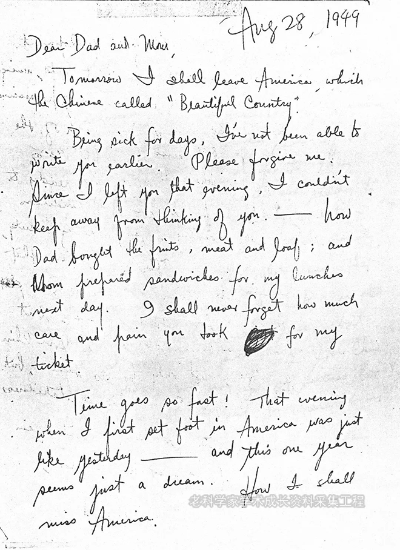 Aug 28, 1949
Dear Dad and Mom,
Tomorrow I shall leave America, which
the Chinese called "Beautiful Country".
Being sick for days, I've not been able to
write you earlier. Please forgive me.
Since I left you that evening, I couldn't
keep away from thinking of you. — how
Dad bought the fruits, meat and loaf; and
Mom prepared sandwiches for my lunches
next day. I shall never forget how much
care and pain you took for my
ticket.
Time goes so fast! That evening
when I first set foot in America was just
like yesterday — and this one year
seems just a dream. How I shall
miss America.
老科学家学术成长资料采集工程